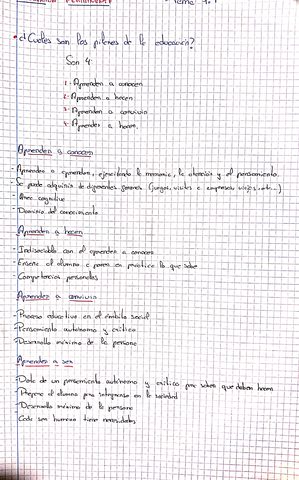 Tema 1.1
• ¿Cuáles son los pilares de la educación?
Son 4:
1- Aprender a conocer
2- Aprender a hacer
3- Aprender a convivir
4- Aprender a hacer.
Aprender a conocer
- Aprender a aprender, ejercitando la memoria, la atención y el pensamiento.
- Se puede adquirir de diferentes formas (juegos, visitas a empresas, viajes, etc...)
- Área cognitiva
- Dominio del conocimiento
Aprender a hacer
- Indisociable con el aprender a conocer
- Enseñar al alumno a poner en práctica lo que sabe
- Competencias personales
Aprender a convivir
- Proceso educativo en el ámbito social
- Pensamiento autónomo y crítico
- Desarrollo máximo de la persona
Aprender a ser
- Dote de un pensamiento autónomo y crítico para saber que deben hacer
- Prepare al alumno para integrarse en la sociedad
- Desarrollo máximo de la persona
- Cada ser humano tiene necesidades